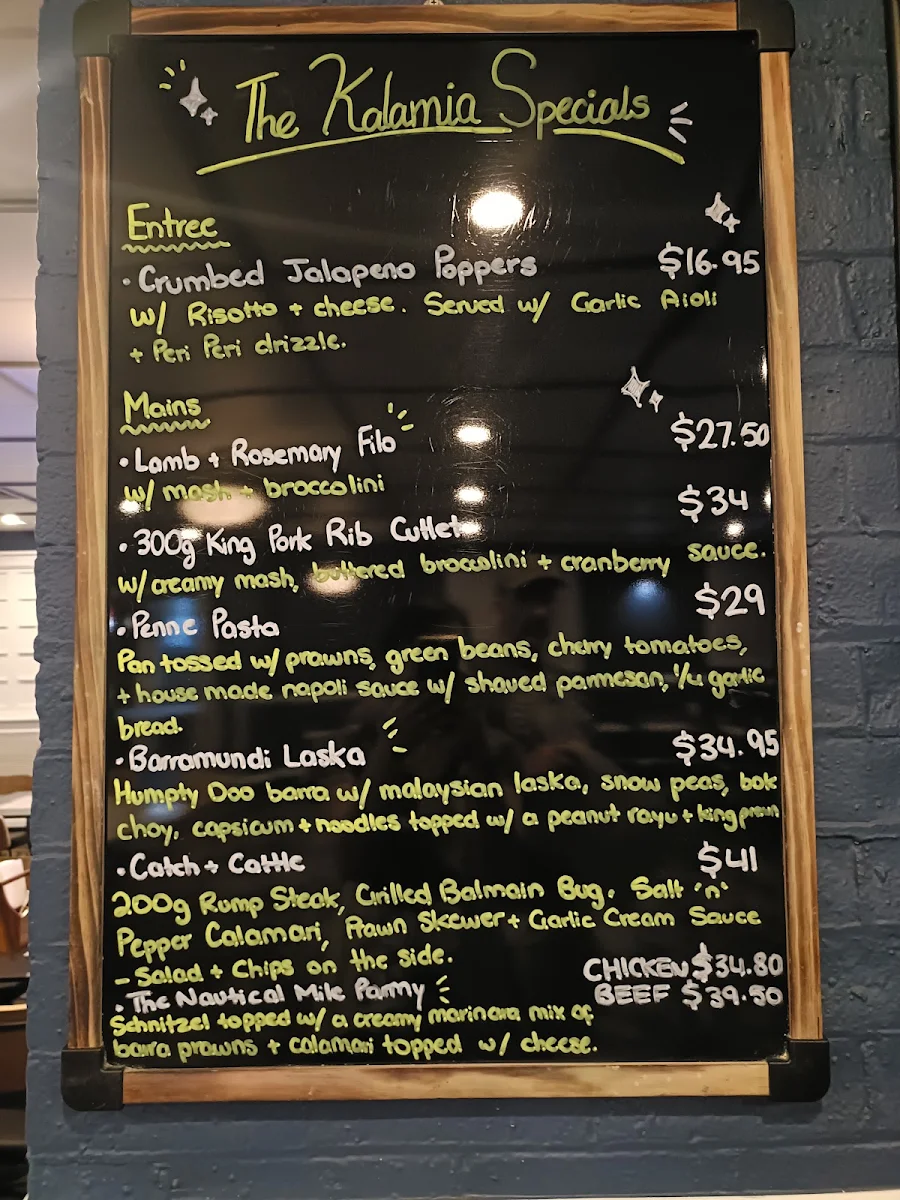 The Kalamia Specials
Entree
• Crumbed Jalapeno Poppers $16.95
w/ Risotto + cheese. Served w/ Garlic Aioli
+ Peri Peri drizzle.
Mains
• Lamb + Rosemary Filo $27.50
w/ mash + broccolini
• 300g King Pork Rib Cutlet $34
w/ creamy mash, buttered broccolini + cranberry sauce.
• Penne Pasta $29
Pan tossed w/ prawns, green beans, cherry tomatoes,
+ house made napoli sauce w/ shaved parmesan, 1/4 garlic
bread.
• Barramundi Laska $34.95
Humpty Doo barra w/ malaysian laska, snow peas, bok
choy, capsicum + noodles topped w/ a peanut rayu + king prawn
• Catch + Cattle $41
200g Rump Steak, Grilled Balmain Bug. Salt 'n'
Pepper Calamari, Prawn Skewer + Garlic Cream Sauce
- Salad + Chips on the side.
• The Nautical Mile Parmy CHICKEN $34.80
BEEF $39.50
Schnitzel topped w/ a creamy marinara mix of
barra prawns + calamari topped w/ cheese.